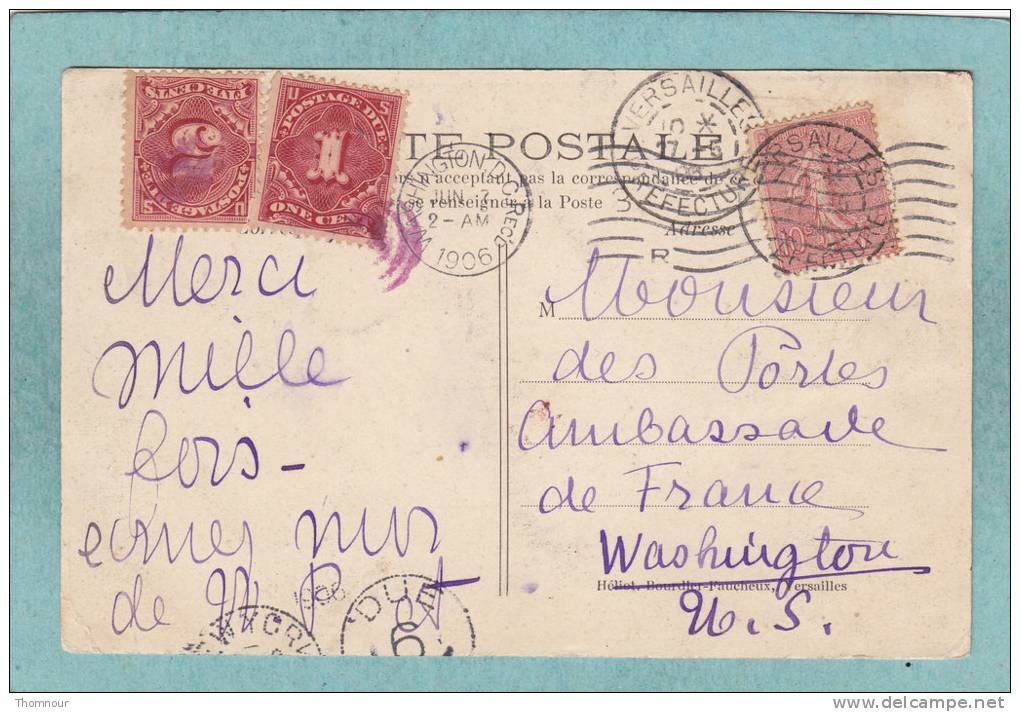 FIVE CENTS
5
POSTAGE DUE
U S
U S
POSTAGE DUE
1
ONE CENT
WASHINGTON, D.C. REC'D
JUN 7
2-AM
1906
VERSAILLES
PREFECTURE
VERSAILLES
PREFECTURE
3
R
CARTE POSTALE
n'acceptant pas la correspondance
se renseigner à la Poste
Adresse
Merci
mille
fois -
de
M Monsieur
des Pôrtes
Ambassade
de France
Washington
U.S.
Héliot. Bourdier-Faucheux, Versailles
1906
NEW YORK
DUE
6
Thomnour
www.delcampe.net